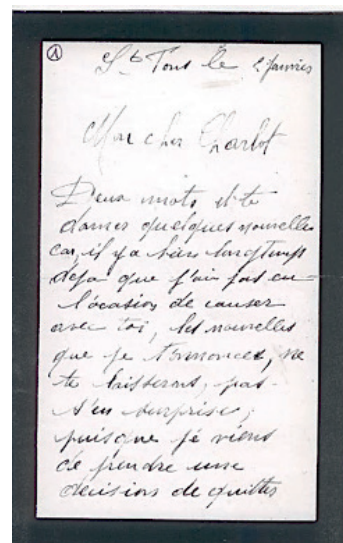 ①
St Tons le 2 Janvier
Mon cher Charlot
Deux mots et te
donner quelques nouvelles
car, il y a bien longtemps
déja que j'ai pas eu
l'ocasion de causer
avec toi, les nouvelles
que je t'annonces, ne
te laisserons, pas
s'en surprise,
puisque je viens
de prendre une
décision de quitter